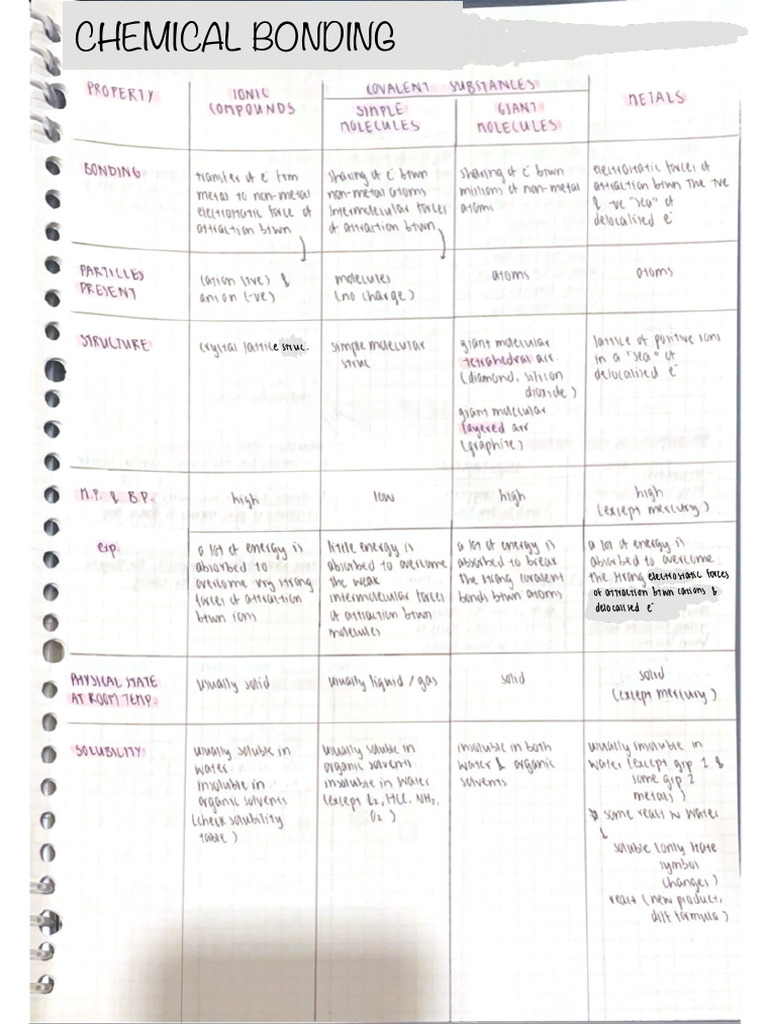 CHEMICAL BONDING
PROPERTY
IONIC
COMPOUNDS
COVALENT SUBSTANCES
SIMPLE
MOLECULES
GIANT
MOLECULES
METALS
BONDING
transfer of e⁻ from
metal to non-metal
electrostatic force of
attraction btwn
sharing of e⁻ btwn
non-metal atoms
intermolecular forces
of attraction btwn
sharing of e⁻ btwn
millions of non-metal
atoms
electrostatic forces of
attraction btwn the +ve
& -ve "sea" of
delocalised e⁻
PARTICLES
PRESENT
cation (+ve) &
anion (-ve)
molecules
(no charge)
atoms
atoms
STRUCTURE
crystal lattice struc.
simple molecular
struc
giant molecular
tetrahedral arr.
(diamond, silicon
dioxide)
giant molecular
layered arr
(graphite)
lattice of positive ions
in a "sea" of
delocalised e⁻
M.P. & B.P.
high
low
high
high
(except mercury)
exp.
a lot of energy is
absorbed to
overcome very strong
forces of attraction
btwn ions
little energy is
absorbed to overcome
the weak
intermolecular forces
of attraction btwn
molecules
a lot of energy is
absorbed to break
the strong covalent
bonds btwn atoms
a lot of energy is
absorbed to overcome
the strong electrostatic forces
of attraction btwn cations &
delocalised e⁻
PHYSICAL STATE
AT ROOM TEMP.
usually solid
usually liquid / gas
solid
solid
(except mercury)
SOLUBILITY
usually soluble in
water.
insoluble in
organic solvents
(check solubility
table)
usually soluble in
organic solvents
insoluble in water
(except HCl, NH₃,
insoluble in both
water & organic
solvents
usually insoluble in
water (except grp 1 &
some grp 2
metals)
some react w water
soluble (only state
symbol
changes)
react (new product,
diff formula)